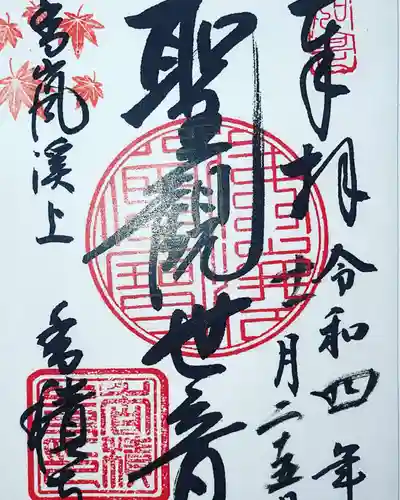 奉拝
令和四年
十一月二十五
聖観世音
香嵐溪上
香積寺